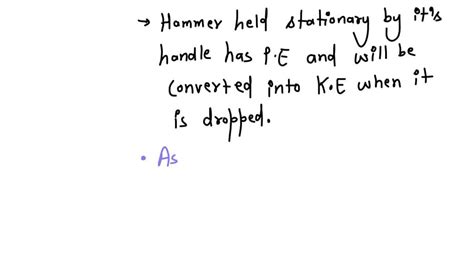 → Hammer held stationary by it's
handle has P.E and will be
converted into K.E when it
is dropped.
• As